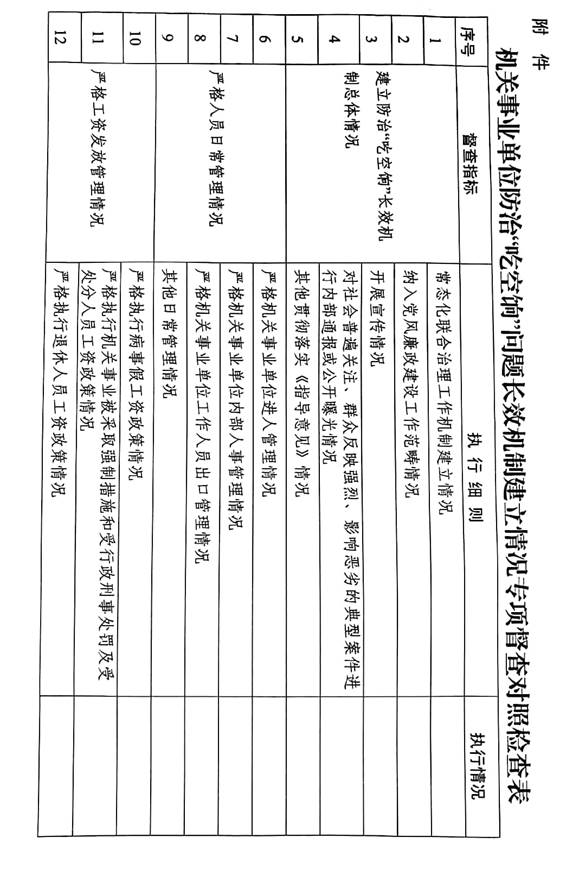 附件
机关事业单位防治“吃空饷”问题长效机制建立情况专项督查对照检查表
序号 督查指标 执行细则 执行情况
建立防治“吃空饷”长效机
制总体情况
1 常态化联合治理工作机制建立情况
2 纳入党风廉政建设工作范畴情况
3 开展宣传情况
4 对社会普遍关注、群众反映强烈、影响恶劣的典型案件进
行内部通报或公开曝光情况
5 其他贯彻落实《指导意见》情况
严格人员日常管理情况
6 严格机关事业单位进人管理情况
7 严格机关事业单位内部人事管理情况
8 严格机关事业单位工作人员出口管理情况
9 其他日常管理情况
严格工资发放管理情况
10 严格执行病事假工资政策情况
11 严格执行机关事业被采取强制措施和受行政刑事处罚及受
处分人员工资政策情况
12 严格执行退休人员工资政策情况